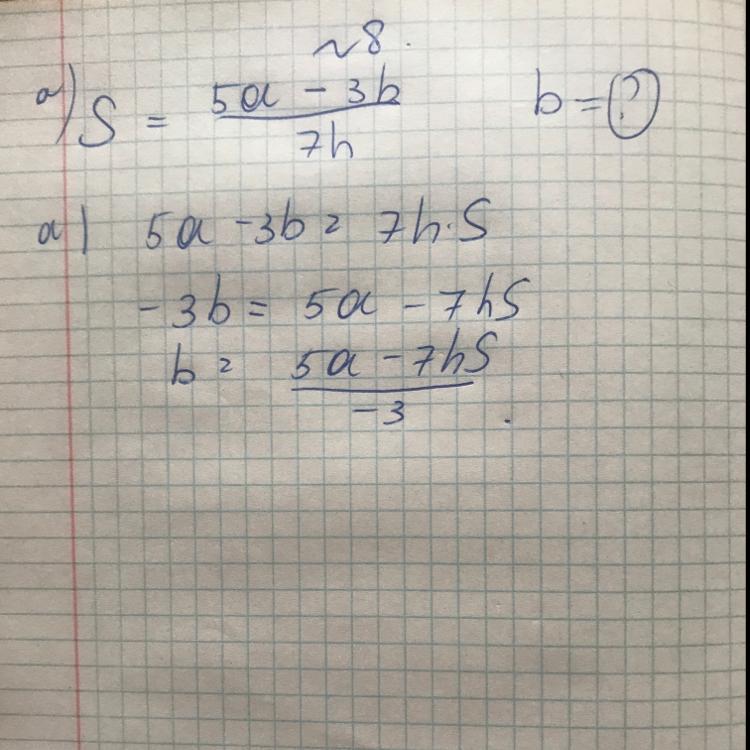 ~8.
а) S = (5a - 3b) / 7h b = ?
а) 5a - 3b = 7h·S
-3b = 5a - 7hS
b = (5a - 7hS) / -3.